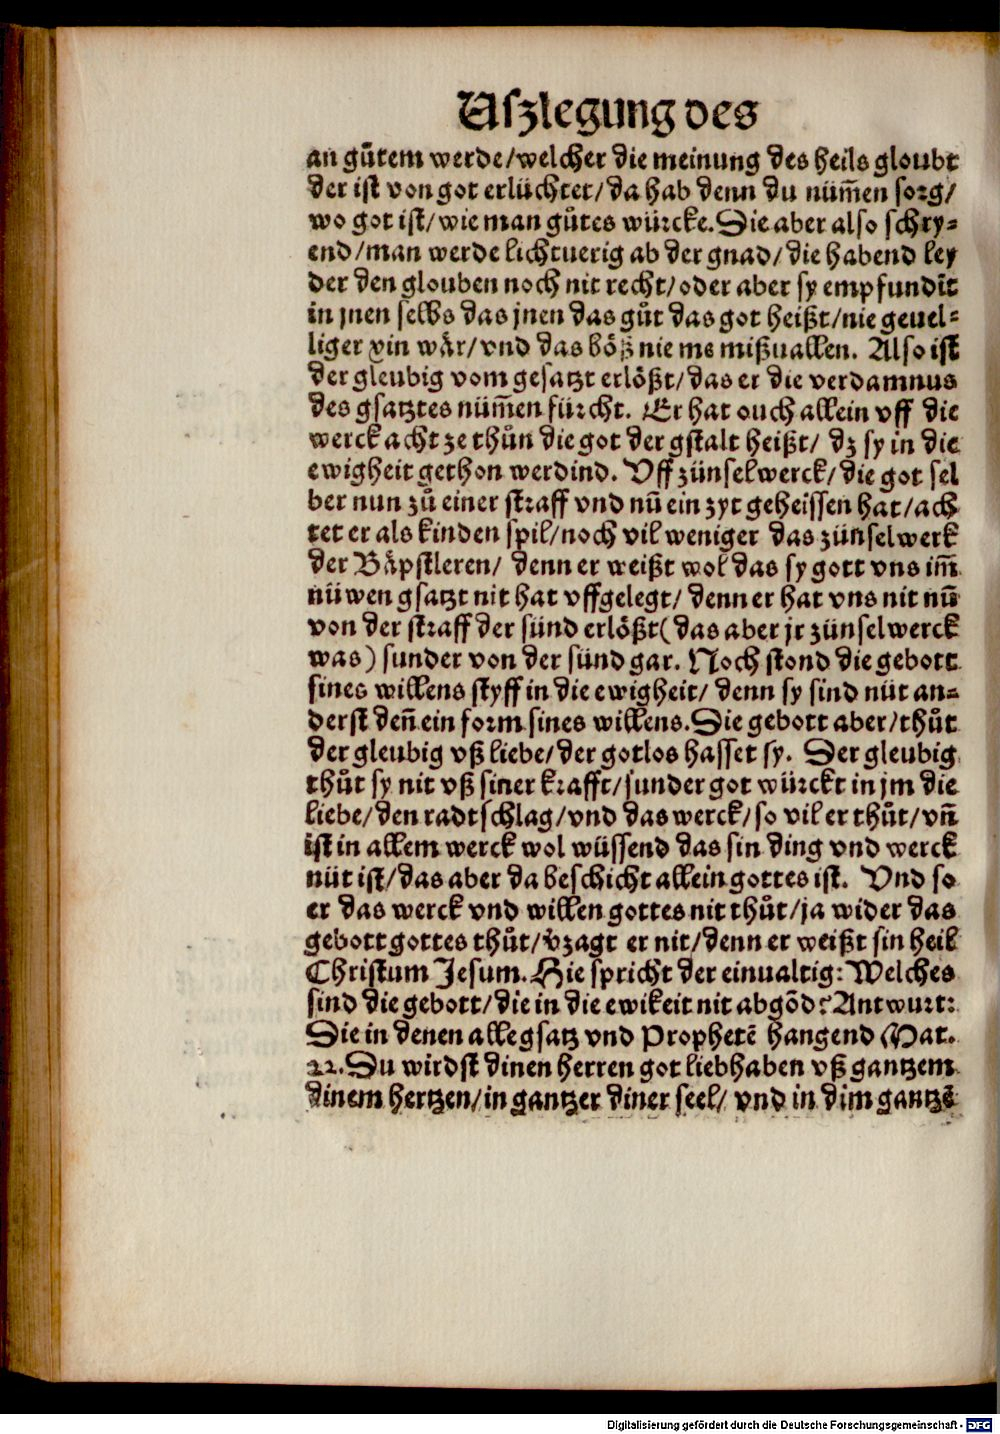 Uſzlegung des
an gůtem werde/welcher die meinung des heils gloubt
der iſt von got erlüchtet/da hab denn du nüm̃en ſorg/
wo got iſt/wie man gůtes würcke. Die aber alſo ſchry⸗
end/man werde lichtuerig ab der gnad/die habend ley
der den glouben noch nit recht/oder aber ſy empfundīt
in jnen ſelbs das jnen das gůt das got heißt/nie geuel⸗
liger xin wär/vnd das böß nie me mißuallen. Alſo iſt
der gleubig vom geſatzt erlößt/das er die verdamnus
des gſatztes nüm̃en fürcht. Er hat ouch allein vff die
werck acht ze thůn die got der gſtalt heißt/ dz ſy in die
ewigheit gethon werdind. Vff zünſelwerck/die got ſel
ber nun zů einer ſtraff vnd nū ein zyt geheiſſen hat/ach
tet er als kinden ſpil/noch vil weniger das zünſelwerk
der Bäpſtleren/ denn er weißt wol das ſy gott vns im̃
nüwen gſatzt nit hat vffgelegt/ denn er hat vns nit nū
von der ſtraff der ſünd erlößt(das aber jr zünſelwerck
was) ſunder von der ſünd gar. Noch ſtond die gebott
ſines willens ſtyff in die ewigheit/ denn ſy ſind nüt an⸗
derſt deñ ein form ſines willens. Die gebott aber/thůt
der gleubig vß liebe/der gotlos haſſet ſy. Der gleubig
thůt ſy nit vß ſiner krafft/ſunder got würckt in jm die
liebe/den radtſchlag/vnd das werck/ſo vil er thůt/vñ
iſt in allem werck wol wüſſend das ſin ding vnd werck
nüt iſt/das aber da beſchicht allein gottes iſt. Vnd ſo
er das werck vnd willen gottes nit thůt/ja wider das
gebott gottes thůt/v̄zagt er nit/denn er weißt ſin heil
Chriſtum Jeſum. Hie ſpricht der einualtig: Welches
ſind die gebott/die in die ewikeit nit abgōd? Antwurt:
Die in denen alle gſatz vnd Prophetē hangend Mat.
22. Du wirdſt dinen herren got liebhaben vß gantzem
dinem hertzen/in gantzer diner ſeel/ vnd in dim gantzē
Digitalisierung gefördert durch die Deutsche Forschungsgemeinschaft - DFG